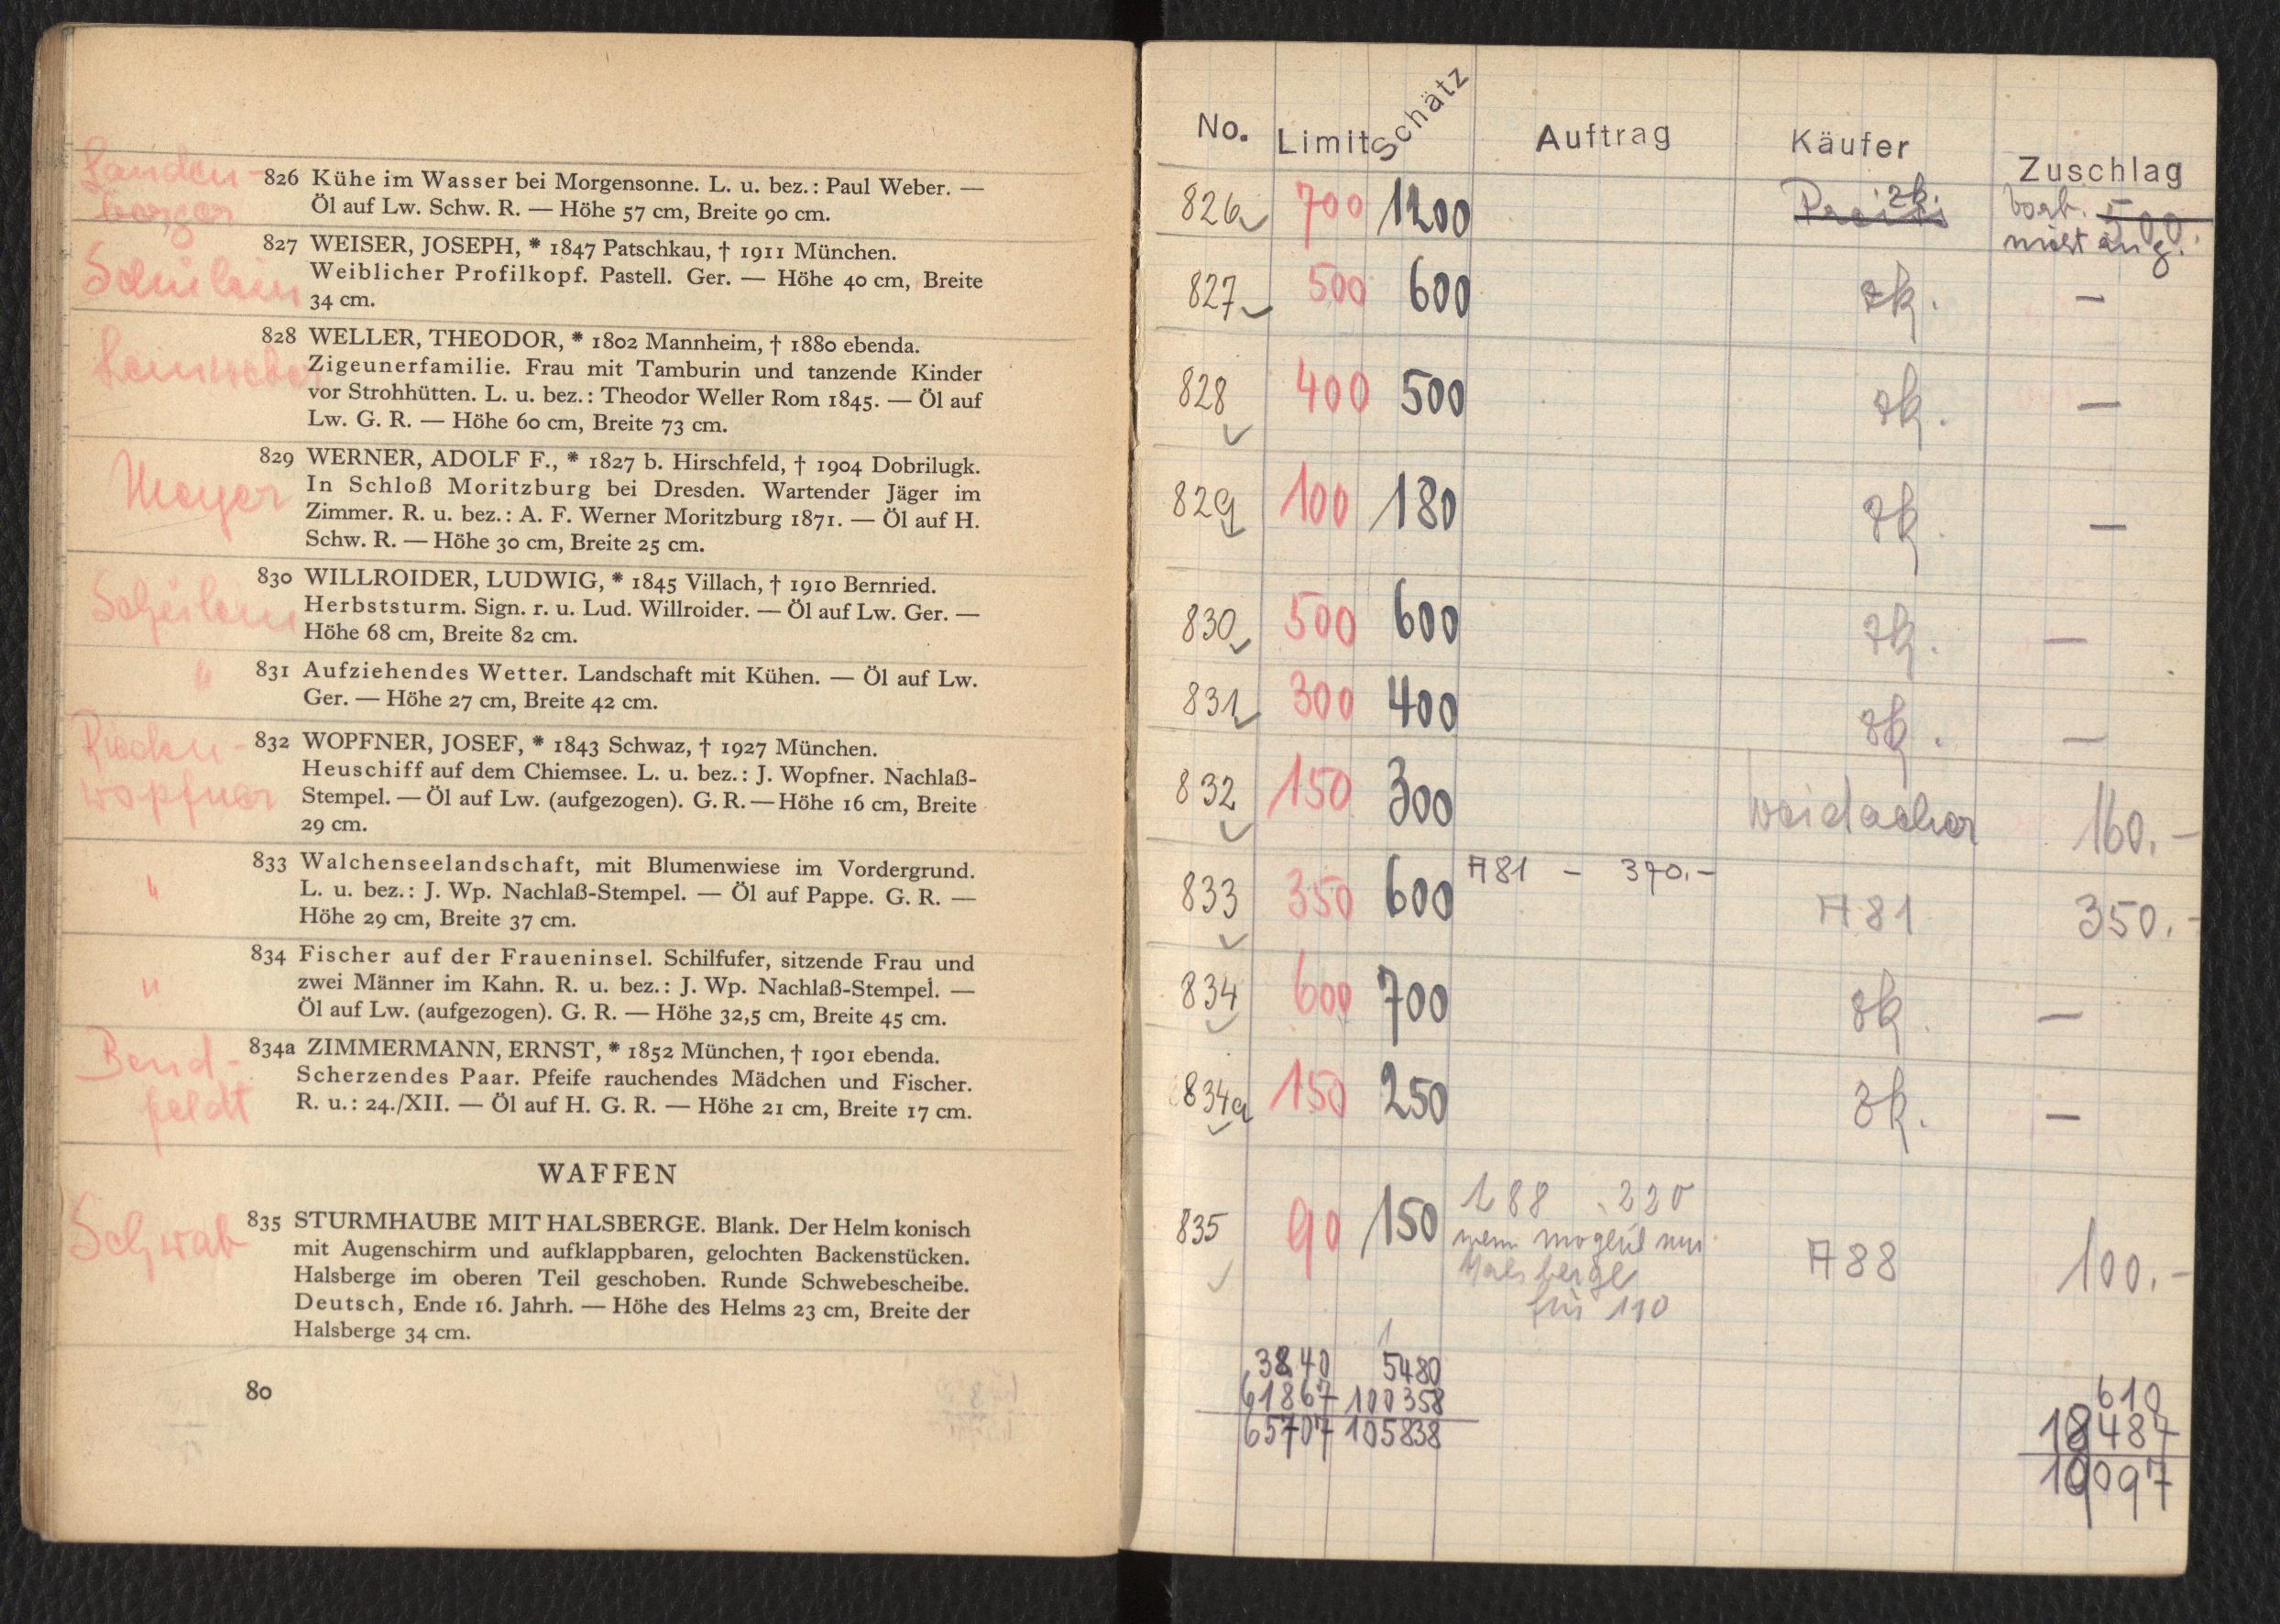 Landen-
berger
826 Kühe im Wasser bei Morgensonne. L. u. bez.: Paul Weber. —
Öl auf Lw. Schw. R. — Höhe 57 cm, Breite 90 cm.
827 WEISER, JOSEPH, * 1847 Patschkau, † 1911 München.
Weiblicher Profilkopf. Pastell. Ger. — Höhe 40 cm, Breite
34 cm.
828 WELLER, THEODOR, * 1802 Mannheim, † 1880 ebenda.
Zigeunerfamilie. Frau mit Tamburin und tanzende Kinder
vor Strohhütten. L. u. bez.: Theodor Weller Rom 1845. — Öl auf
Lw. G. R. — Höhe 60 cm, Breite 73 cm.
Meyer
829 WERNER, ADOLF F., * 1827 b. Hirschfeld, † 1904 Dobrilugk.
In Schloß Moritzburg bei Dresden. Wartender Jäger im
Zimmer. R. u. bez.: A. F. Werner Moritzburg 1871. — Öl auf H.
Schw. R. — Höhe 30 cm, Breite 25 cm.
830 WILLROIDER, LUDWIG, * 1845 Villach, † 1910 Bernried.
Herbststurm. Sign. r. u. Lud. Willroider. — Öl auf Lw. Ger. —
Höhe 68 cm, Breite 82 cm.
"
831 Aufziehendes Wetter. Landschaft mit Kühen. — Öl auf Lw.
Ger. — Höhe 27 cm, Breite 42 cm.
wopfner
832 WOPFNER, JOSEF, * 1843 Schwaz, † 1927 München.
Heuschiff auf dem Chiemsee. L. u. bez.: J. Wopfner. Nachlaß-
Stempel. — Öl auf Lw. (aufgezogen). G. R. — Höhe 16 cm, Breite
29 cm.
"
833 Walchenseelandschaft, mit Blumenwiese im Vordergrund.
L. u. bez.: J. Wp. Nachlaß-Stempel. — Öl auf Pappe. G. R. —
Höhe 29 cm, Breite 37 cm.
"
834 Fischer auf der Fraueninsel. Schilfufer, sitzende Frau und
zwei Männer im Kahn. R. u. bez.: J. Wp. Nachlaß-Stempel. —
Öl auf Lw. (aufgezogen). G. R. — Höhe 32,5 cm, Breite 45 cm.
Bend-
feldt
834a ZIMMERMANN, ERNST, * 1852 München, † 1901 ebenda.
Scherzendes Paar. Pfeife rauchendes Mädchen und Fischer.
R. u.: 24./XII. — Öl auf H. G. R. — Höhe 21 cm, Breite 17 cm.
WAFFEN
Schwab
835 STURMHAUBE MIT HALSBERGE. Blank. Der Helm konisch
mit Augenschirm und aufklappbaren, gelochten Backenstücken.
Halsberge im oberen Teil geschoben. Runde Schwebescheibe.
Deutsch, Ende 16. Jahrh. — Höhe des Helms 23 cm, Breite der
Halsberge 34 cm.
80
No. Limit Schätz Auftrag Käufer Zuschlag
826 700 1200 zk. 500.
827 500 600 zk. —
828 400 500 zk. —
829 100 180 zk. —
830 500 600 zk. —
831 300 400 zk. —
832 150 300 Weidacher 160.—
833 350 600 A81 — 370.— A81 350.—
834 600 700 zk. —
834a 150 250 zk. —
835 90 150 188 220 A88 100.—
nur
Halsberge
für 110
3840 5480
61867 100358
65707 105838
610
18487
19097